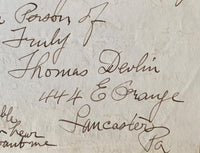 Person of
Truly
Thomas Devlin
444 E Orange
Lancaster
Pa